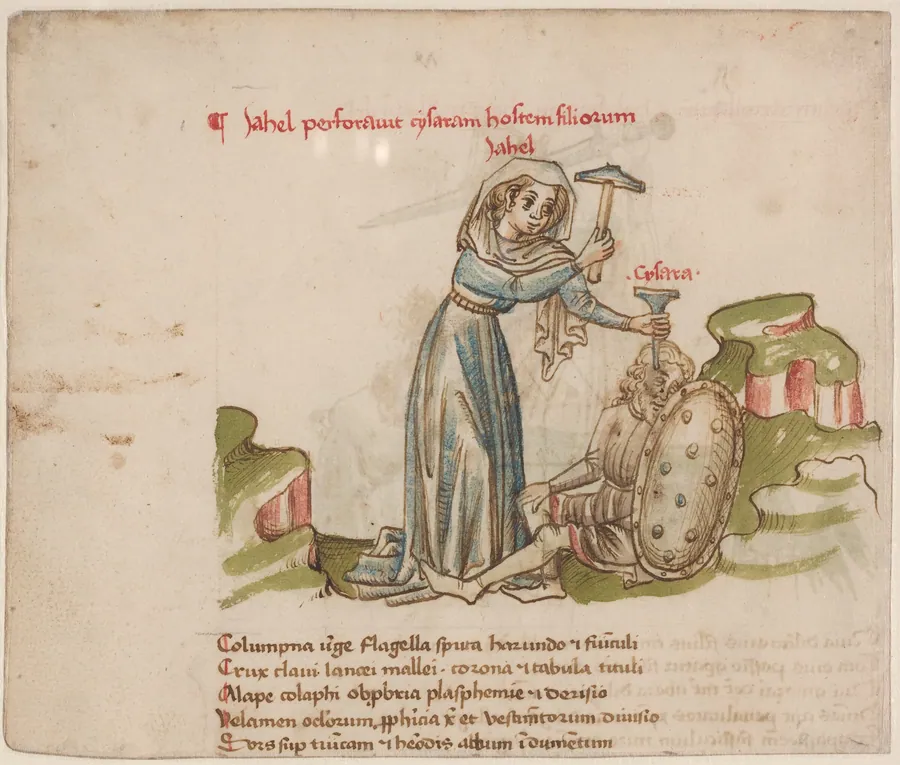 ¶ Jahel perforauit cysaram hostem filiorum
Jahel
· Cysara ·
Columpna uirge flagella sputa harundo ⁊ funiculi
Crux claui lancei mallei · corona ⁊ tabula tituli
Alape colaphi obpbria plasphemie ⁊ derisio
Velamen oclorum, pphicia xͤ et vestimentorum diuisio
Sors sup tunicam ⁊ herodis album indumentum